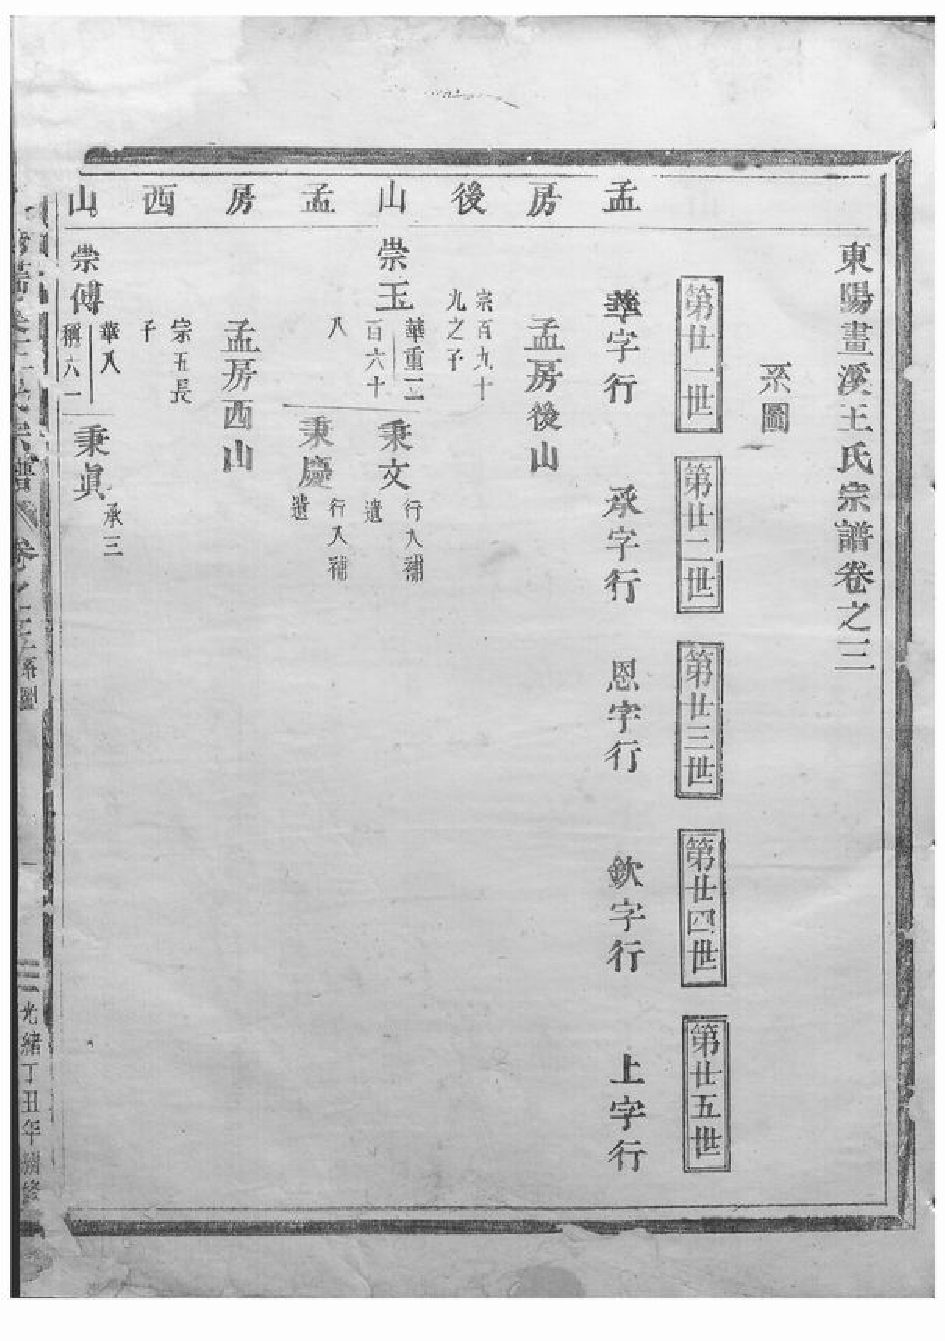 東陽晝溪王氏宗譜卷之三
系圖
第廿一世
第廿二世
第廿三世
第廿四世
第廿五世
孟房後山孟房西山
華字行
承字行
恩字行
欽字行
上字行
孟房後山
宗百九十
九之子
崇玉
華重二
百六十
八
秉文
行入補
遺
秉慶
行入補
遺
孟房西山
宗五長
子
崇傅
華八
稱六一
秉眞
承三
卷之三
系圖
光緒丁丑年